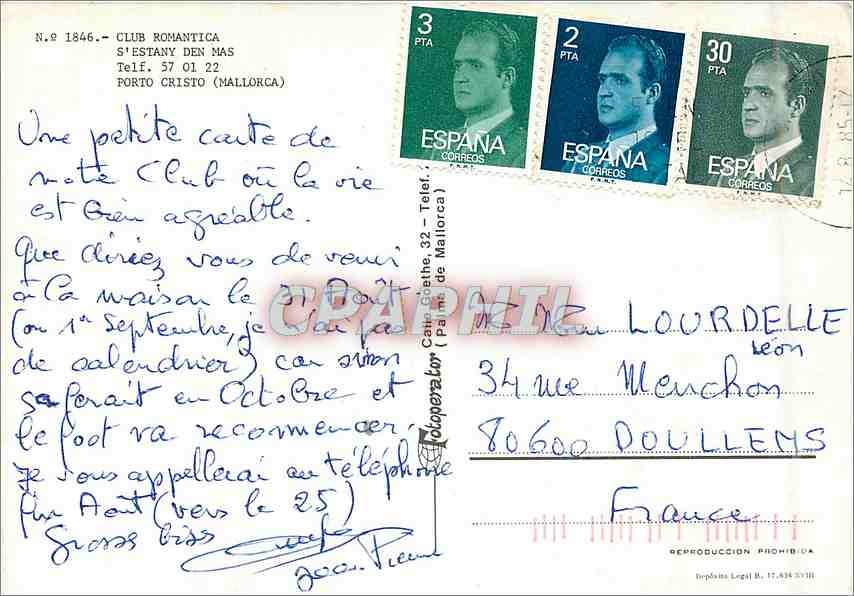 N.º 1846.- CLUB ROMANTICA
S'ESTANY DEN MAS
Telf. 57 01 22
PORTO CRISTO (MALLORCA)
3
PTA
ESPAÑA
CORREOS
F.N.M.T.
2
PTA
ESPAÑA
CORREOS
F.N.M.T.
30
PTA
ESPAÑA
CORREOS
F.N.M.T.
Une petite carte de
notre Club où la vie
est bien agréable.
Que diriez vous de venir
à la maison le 31 Août
(ou 1er Septembre, je n'ai pas
de calendrier) car sinon
ça ferait en Octobre et
le foot va recommencer.
je vous appellerai au téléphone
fin Août (vers le 25)
Grosses bises
Jean Pierre
fotoperator Calle Goethe, 32 - Telef.
(Palma de Mallorca)
CPAPHIL
LOURDELLE
Léon
34 rue Menchon
80600 DOULLENS
France
REPRODUCCION PROHIBIDA
Depósito Legal B. 17.634 XVIII